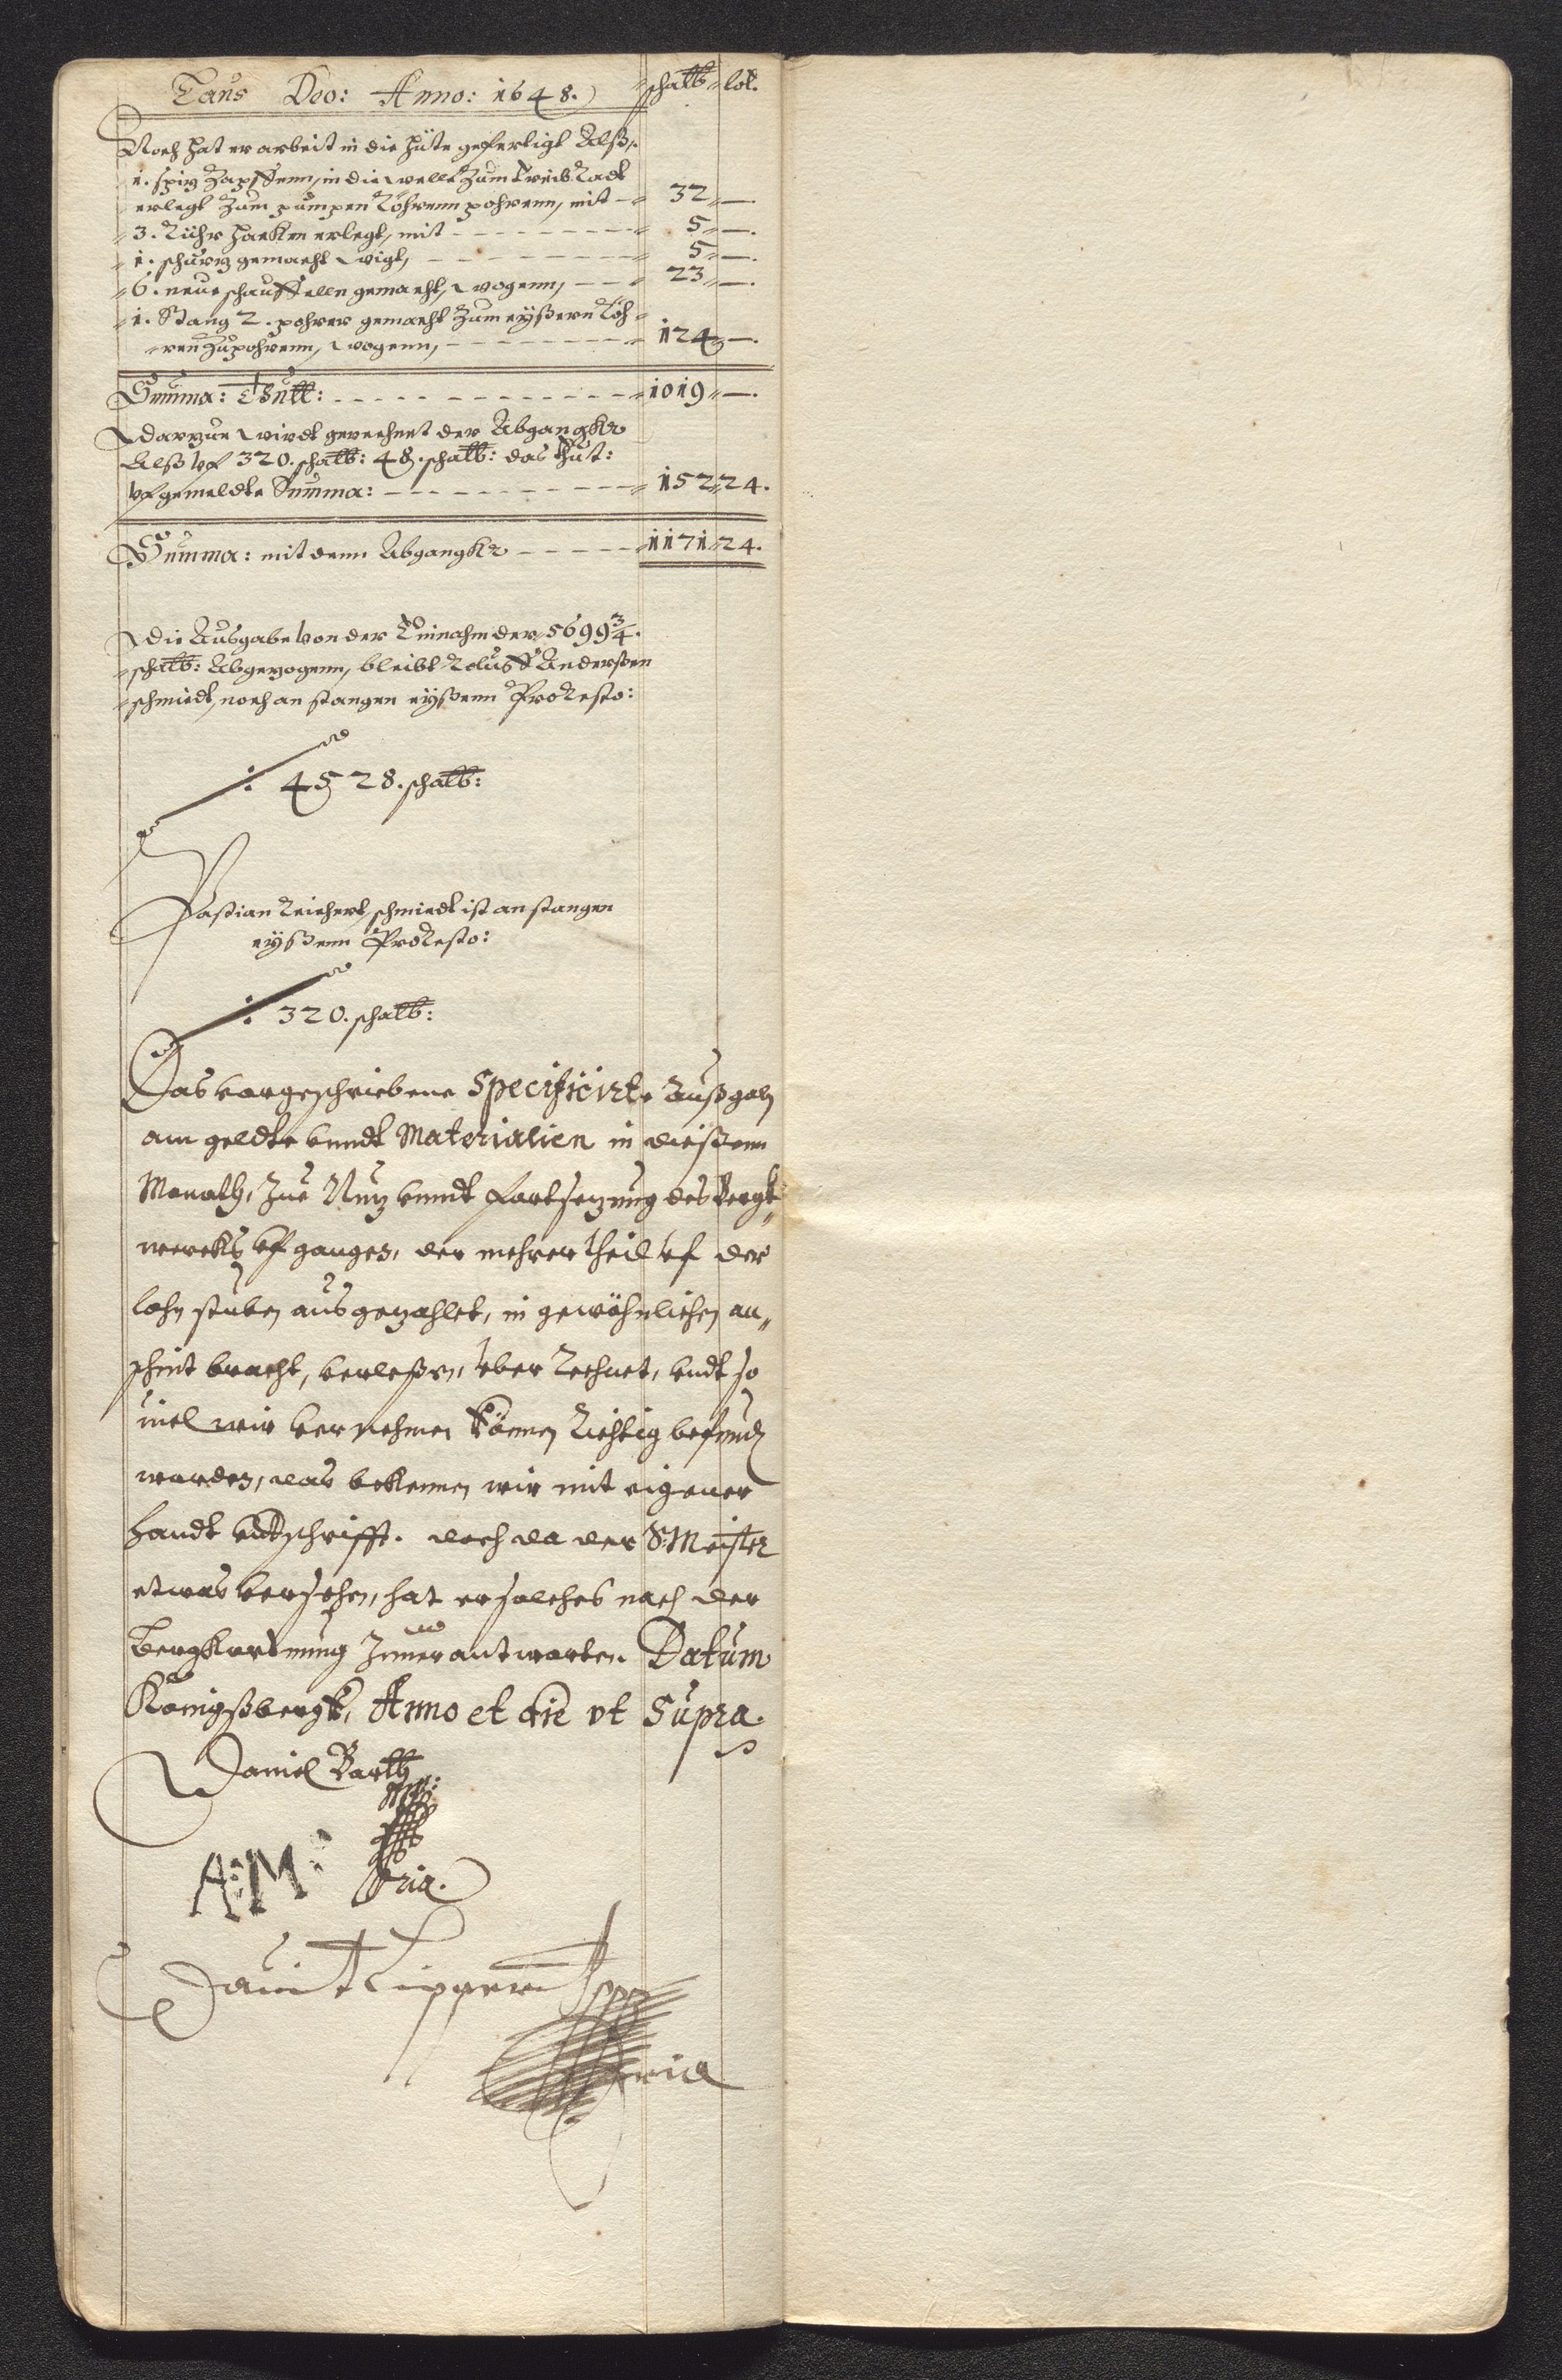 Laus Deo: Anno: 1648. schalb lot.
Noch hat er arbeit in die hüte gefertigt Alß,
1. spiz Zapffenn, in die welle Zum treib Radt
erlegt Zum pumpen Röhrenn pohrenn, mit 32 —.
3. Rühr haeken erlegt, mit 5 —.
1. schürz gemacht wigt, 5 —.
6. neue schauffelln gemacht, wogenn, 23 —.
1. Stang 2. pohrer gemacht Zum eyßern Röh-
ren Zupohrenn, wogenn, 124 —.
Summa: Thutt: 1019 —.
darzue wirdt gerechnet der Abgangkr
Alß vf 320. schalb: 48. schalb: das thut:
vfgemeldte Summa: 152 24.
Summa: mit denn Abgangkr 1171 24.
die Ausgabe von der Einnahm der 5699 3/4.
schalb: Abgezogenn, bleibt Roluff Anderßen
schmiedt, noch an stangen eyßenn Pro Resto:
4528. schalb:
Bastian Reichert, schmiedt ist an stangen
eyßenn Pro Resto:
320. schalb:
Das vorgeschriebene Specificirte Außgab
am geldte vnndt Materialien in dießem
Monath, Zue Nuz vnndt fortsezung des Bergk„
wercks vfgangen, der mehrer theil vf der
lohn stuben ausgezahlet, in gewöhnlichen an„
schnit bracht, verleßen, vber Rechnet, vndt so
viel wir vernehmen können Richtig befundn
worden, das bekennen wir mit eigener
handt vndtschrifft. doch da der S: Meister
etwas versehen, hat er solches nach der
Bergkordnung Zuuerantworten. Datum
Königßbergk, Anno et die vt Supra.
Daniel Barth
A:M: pria.
Dauit Lippert
pria